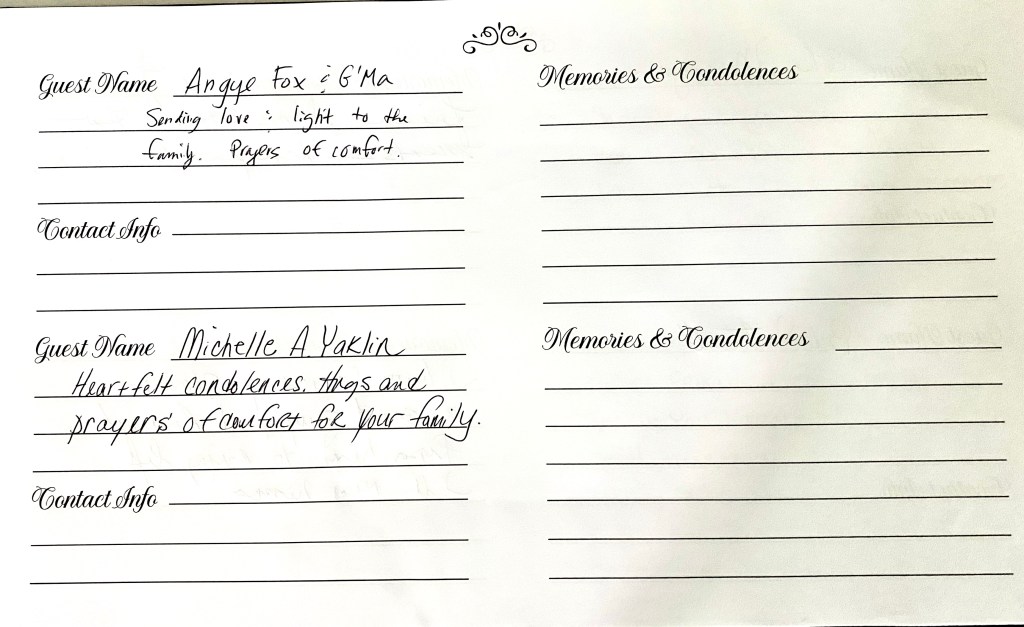 Guest Name Angye Fox & G'Ma
Sending love & light to the
family. Prayers of comfort.
Contact Info
Memories & Condolences
Guest Name Michelle A. Yaklin
Heartfelt condolences. Hugs and
prayers of comfort for your family.
Contact Info
Memories & Condolences